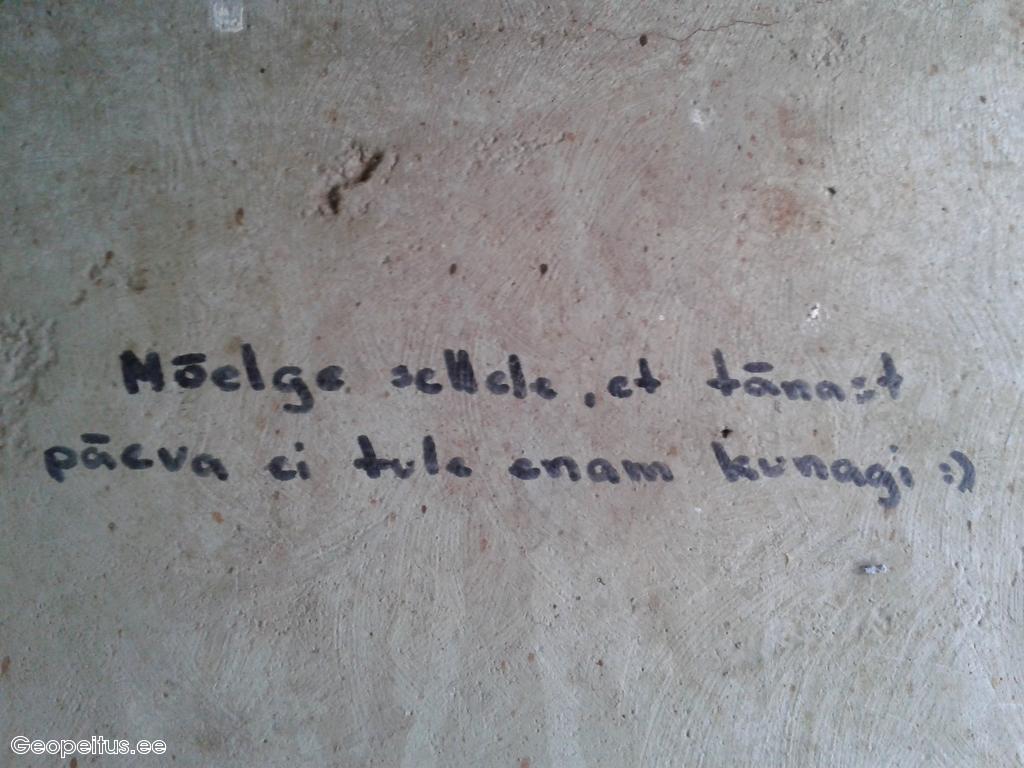 Mõelge sellele, et tänast
päeva ei tule enam kunagi :)
Geopeitus.ee